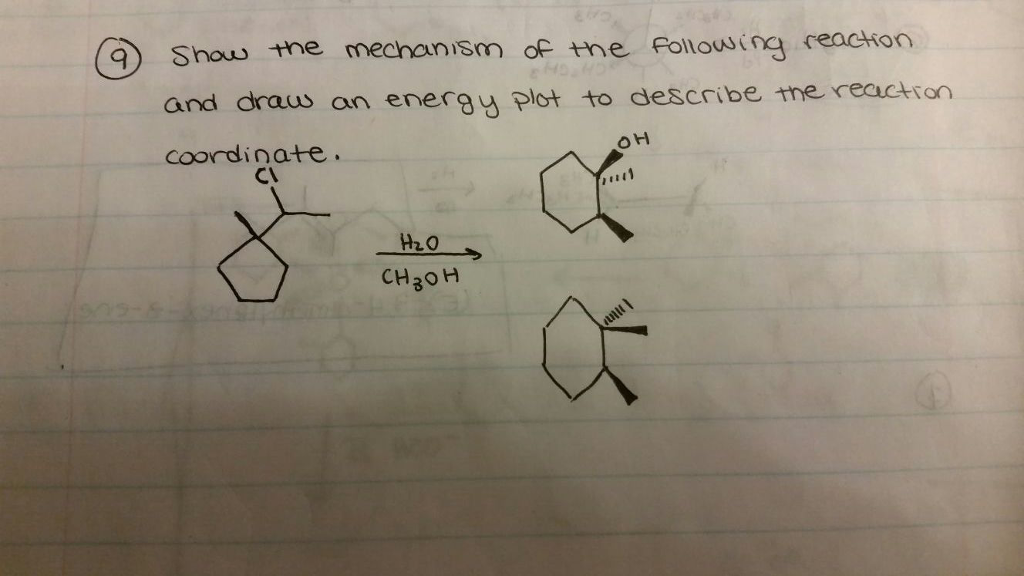 9 Show the mechanism of the following reaction
and draw an energy plot to describe the reaction
coordinate.
Cl
OH
H2O
CH3OH